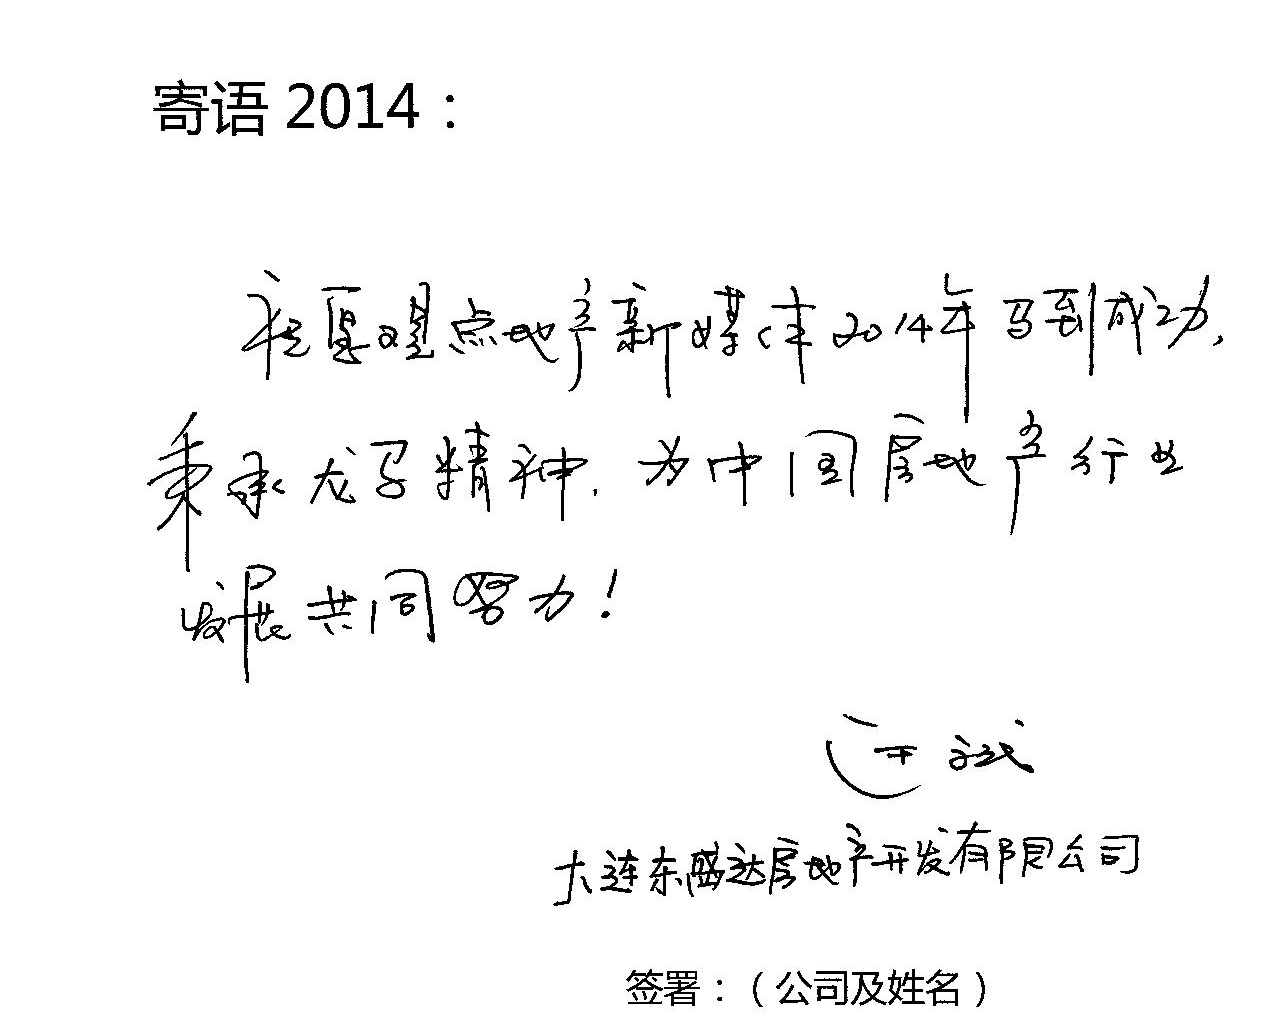 寄语 2014：
祝愿观点地产新媒体2014年马到成功，
秉承龙马精神，为中国房地产行业
发展共同努力！
大连东盛达房地产开发有限公司
签署：（公司及姓名）